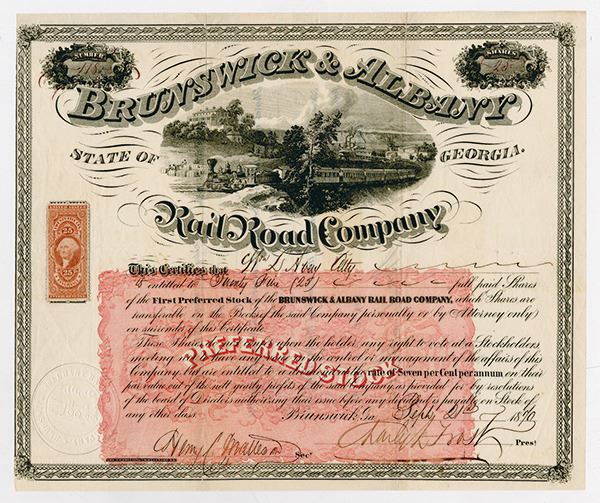 NUMBER
SHARES
25
BRUNSWICK & ALBANY
STATE OF GEORGIA.
Rail Road Company
25 25
This Certifies that
is entitled to Twenty Five (25) full paid Shares
of the First Preferred Stock of the BRUNSWICK & ALBANY RAIL ROAD COMPANY, which Shares are
transferable on the Books of the said Company personally or by Attorney only
on surrender of this Certificate.
These Shares do not confer upon the holder any right to vote at a Stockholders
meeting or to have any in the control or management of the affairs of this
Company but are entitled to at the rate of Seven per Cent per annum on their
par value out of the nett yearly profits of the said Company as provided for by resolutions
of the board of Directors authorizing their issue before any dividend is payable on Stock of
any other class.
PREFERRED STOCK
Brunswick, Ga. Sept 21st 1870
Secy
Charles L Frost Prest